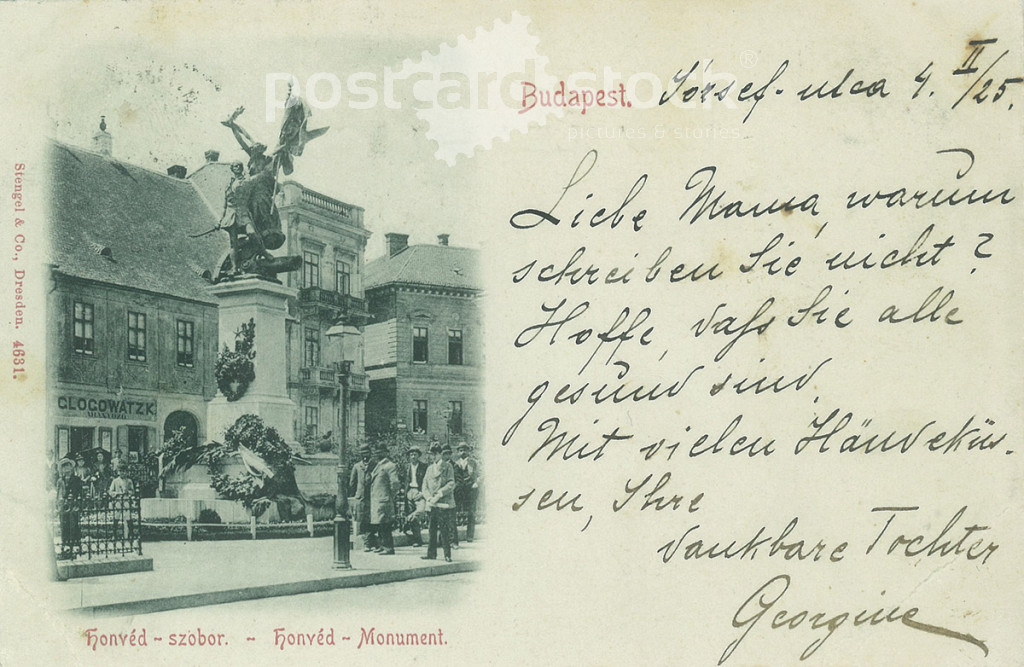 postcard stock ®
pictures & stories
Budapest. József-utca 4. II/25.
Liebe Mama, warum
schreiben Sie nicht?
Hoffe, dass Sie alle
gesund sind.
Mit vielen Händeküs-
sen, Ihre
dankbare Tochter
Georgine
GLOGOWATZK
Stengel & Co., Dresden. 4631.
Honvéd - szobor. - Honvéd - Monument.